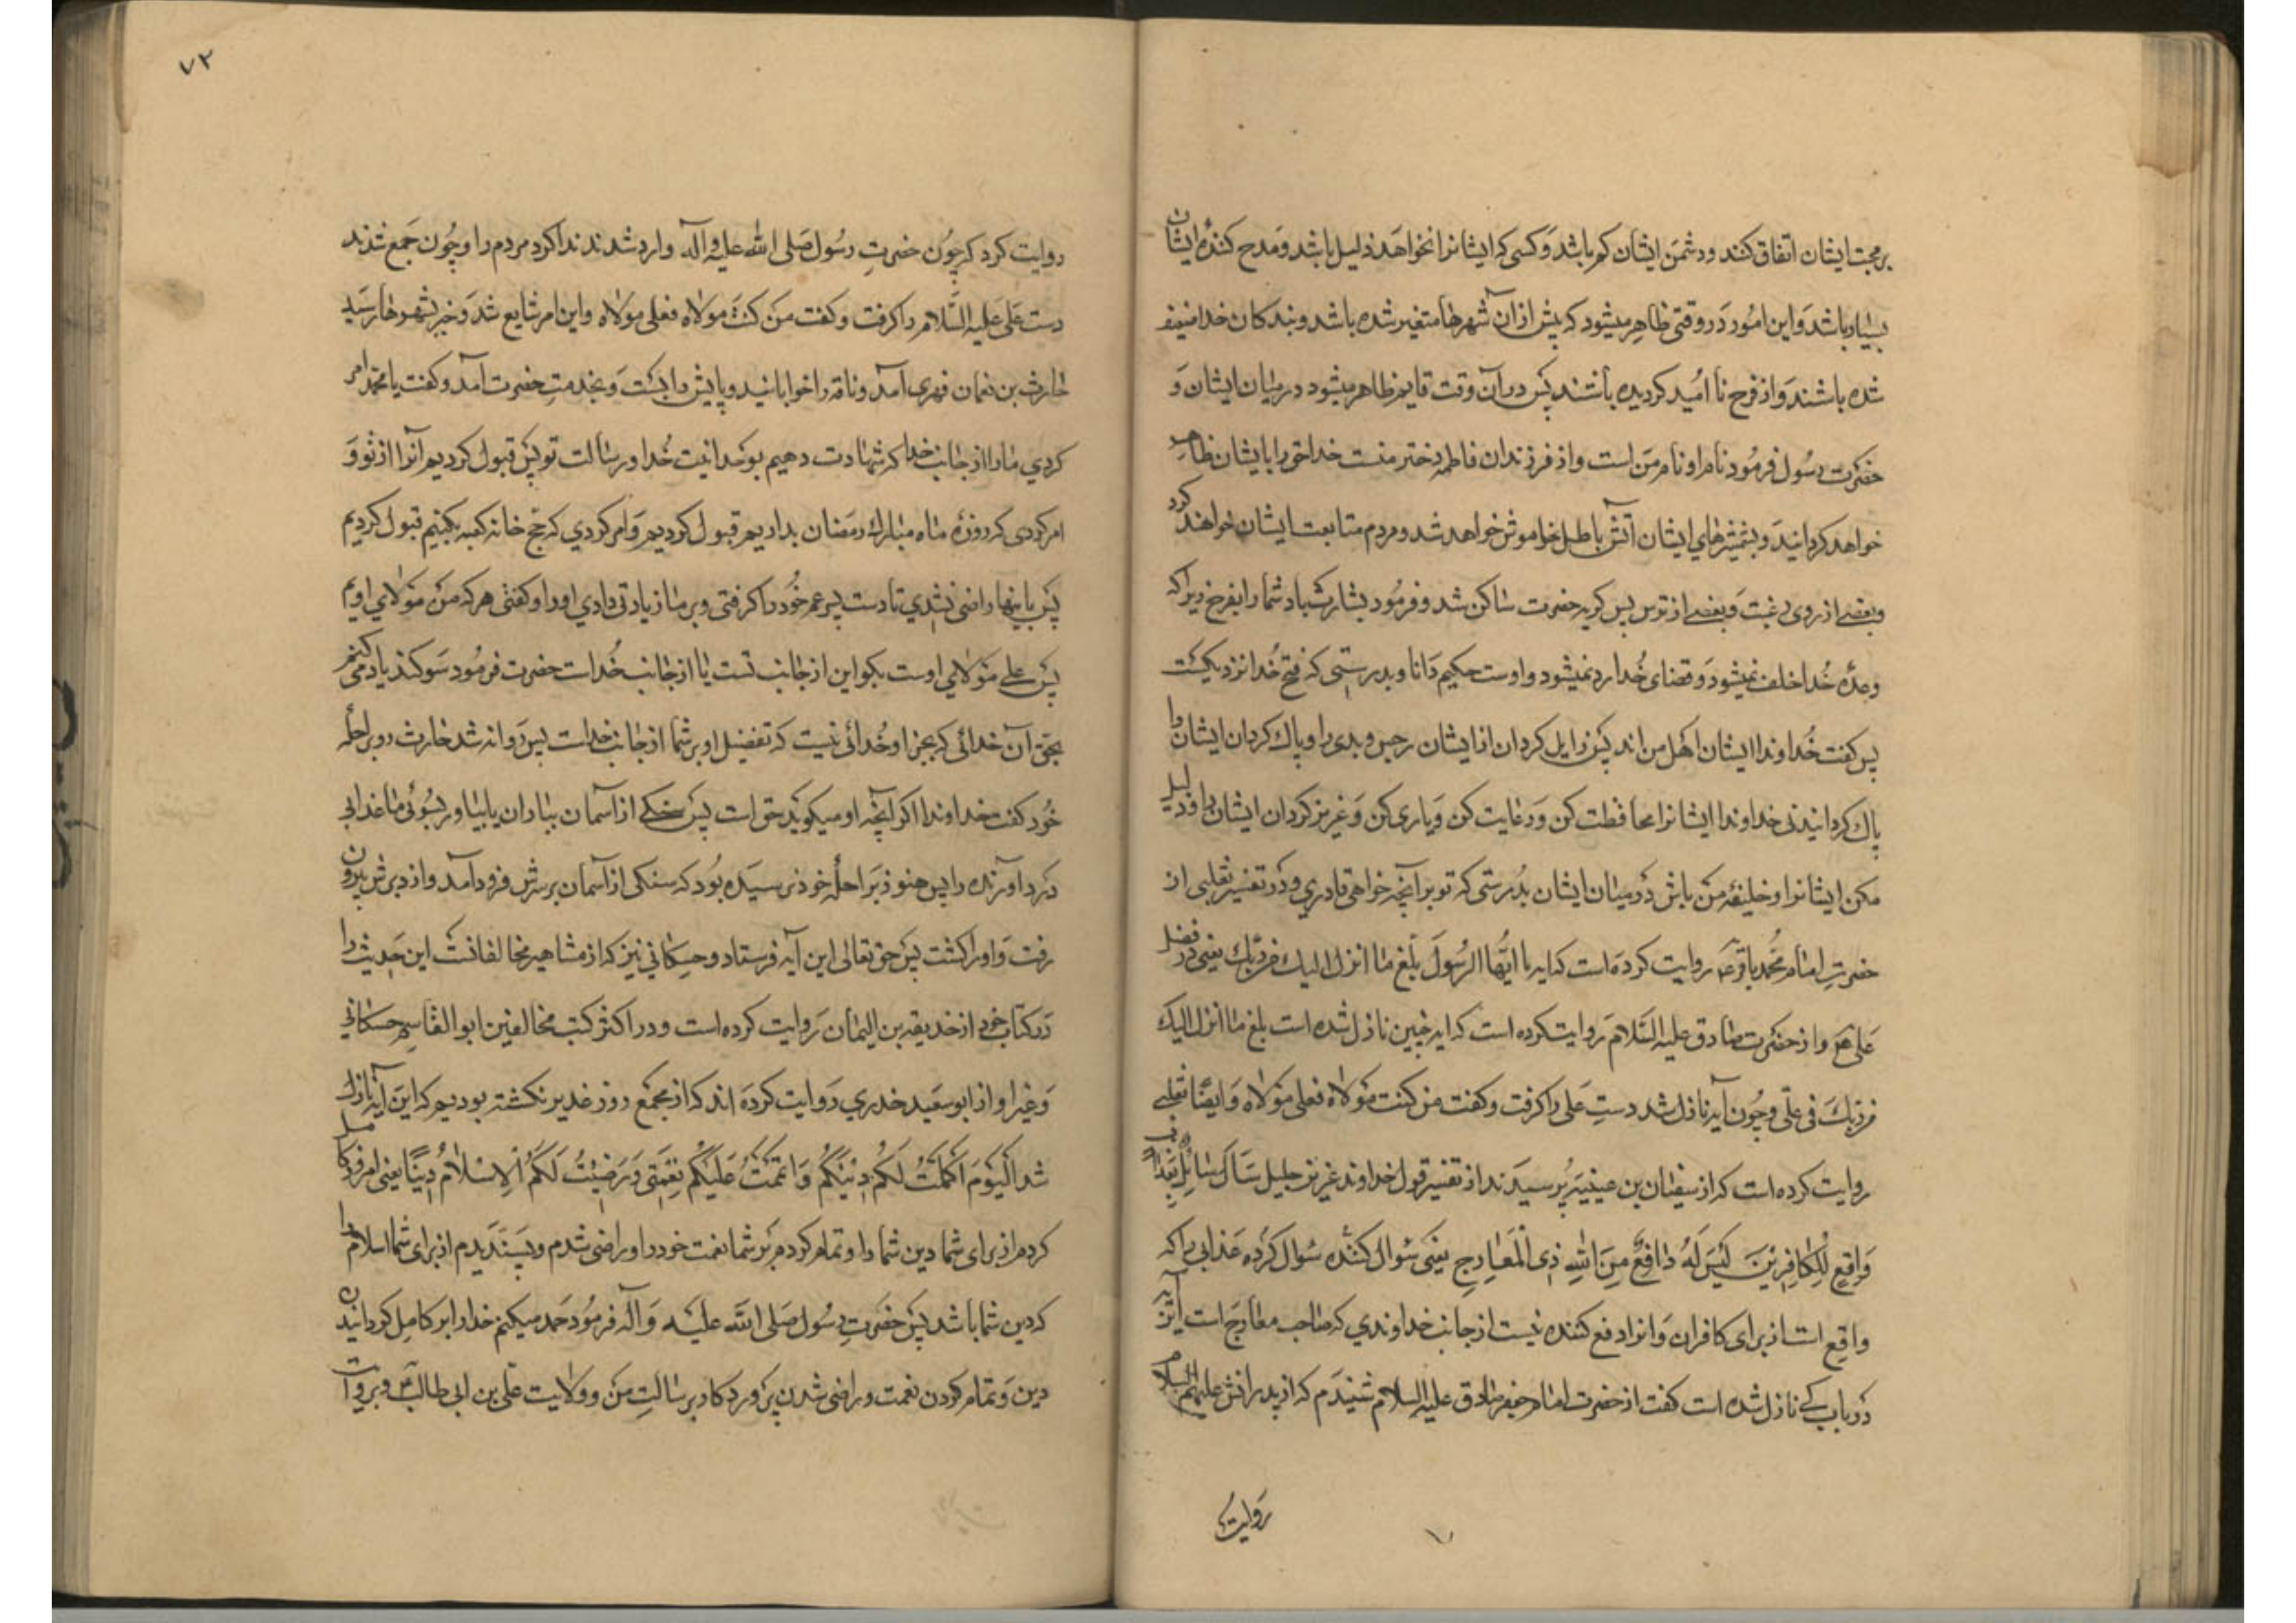 بر محبت ایشان اتفاق کنند و دشمن ایشان کم باشد و کسی که ایشانرا نخواهد ذلیل باشد و مدح کننده ایشان
بسیار باشد و این امور در وقتی ظاهر میشود که پیش از آن شهرها متغیر شده باشد و بندکان خدا ضعیف
شده باشند و از فرح نا امید کردیده باشند پس در آن وقت قایم ظاهر میشود در میان ایشان و
حضرت رسول فرمود نام او نام من است و از فرزندان فاطمه دختر منست خدا حق را بایشان ظاهر
خواهد کردانید و بشمشیرهای ایشان آتش باطل خواموش خواهد شد و مردم متابعت ایشان خواهند کرد
و بعضی از روی رغبت و بعضی از ترس پس کریه حضرت ساکن شد و فرمود بشارت باد شما را بفرح زیرا که
وعده خدا خلف نمیشود و قضای خدا رد نمیشود و اوست حکیم دانا و بدرستی که فتح خدا نزدیکست
پس کفت خداوندا ایشان اهل من اند پس زایل کردان از ایشان رجس و بدی را و پاک کردان ایشان را
پاک کردانیدنی خداوندا ایشانرا محافظت کن و رعایت کن و یاری کن و عزیز کردان ایشان را و ذلیل
مکن ایشانرا و خلیفه من باش در میان ایشان بدرستی که تو بر آنچه خواهی قادری و در تفسیر ثعلبی از
حضرت امام محمد باقر ع روایت کرده است که ایه یا ایها الرسول بلغ ما انزل الیک من ربک یعنی در فضل
علی ع و از حضرت صادق علیه السلام روایت کرده است که ایه چنین نازل شده است بلغ ما انزل الیک
من ربک فی علی و چون آیه نازل شد دست علی را کرفت و کفت من کنت مولاه فعلی مولاه و ایضا ثعلبی
روایت کرده است که از سفیان بن عیینه پرسیدند از تفسیر قول خداوند عزیز جلیل سَأَلَ سَائِلٌ بِعَذَابٍ
وَاقِعٍ لِلْکَافِرِینَ لَیْسَ لَهُ دَافِعٌ مِنَ اللهِ ذِی الْمَعَارِجِ یعنی سوال کننده سوال کرده عذابی را که
واقع است از برای کافران و انرا دفع کننده نیست از جانب خداوندی که صاحب معارج است این آیه
در باب که نازل شده است کفت از حضرت امام جعفر صادق علیه السلام شنیدم که از پدرانش علیهم السلام
روایت
۷۲
روایت کرد که چون حضرت رسول صلی الله علیه و آله وارد شدند ندا کرد مردم را و چون جمع شدند
دست علی علیه السلام را کرفت و کفت من کنت مولاه فعلی مولاه و این امر شایع شد و خبر بشهرها رسید
حارث بن نعمان فهری آمد و ناقه را خوابانید و پایش را بست و بخدمت حضرت آمد و کفت یا محمد امر
کردی ما را از جانب خدا که شهادت دهیم بوحدانیت خدا و رسالت تو پس قبول کردیم آنرا از تو و
امر کردی که روزه ماه مبارک رمضان بداریم قبول کردیم و امر کردی که حج خانه کعبه بکنیم قبول کردیم
پس باینها راضی نشدی تا دست پسر عم خود را کرفتی و بر ما زیادتی دادی او را و کفتی هر که من مولای اویم
پس علی مولای اوست بکو این از جانب تست یا از جانب خداست حضرت فرمود سوکند یاد میکنم
بحق آن خدائی که بجز او خدائی نیست که تفضیل او بر شما از جانب خداست پس روانه شد حارث رو براحله
خود کفت خداوندا اکر آنچه او میکوید حق است پس سنکی از آسمان بباران یا بیاور بسوئی ما عذابی
درد اورنده را پس هنوز براحله خود نرسیده بود که سنکی از آسمان بر سرش فرود آمد و از دبرش بیرون
رفت و او را کشت پس حق تعالی این آیه فرستاد و حسکانی نیز که از مشاهیر مخالفانست این حدیث را
در کتاب خود از حذیقه بن الیمان روایت کرده است و در اکثر کتب مخالفین ابو القاسم حسکانی
و غیر او از ابو سعید خدری روایت کرده اند که از مجمع روز غدیر نکشته بودیم که این آیه نازل
شد اَلْیَوْمَ اَکْمَلْتُ لَکُمْ دِیْنَکُمْ وَ اَتْمَمْتُ عَلَیْکُمْ نِعْمَتِی وَ رَضِیْتُ لَکُمُ الْاِسْلَامَ دِینًا یعنی امروز کامل
کردم از برای شما دین شما را و تمام کردم بر شما نعمت خود را و راضی شدم و پسندیدم از برای شما اسلام را
که دین شما باشد پس حضرت رسول صلی الله علیه و آله فرمود حمد میکنم خدا را بر کامل کردانیدن
دین و تمام کردن نعمت و راضی شدن پرورد کار برسالت من و ولایت علی بن ابی طالب و بروایت